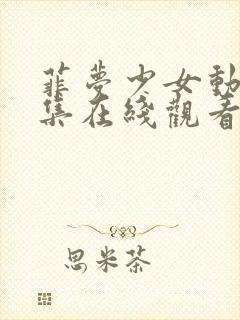 菲夢少女動
集在綫觀看
思米茶